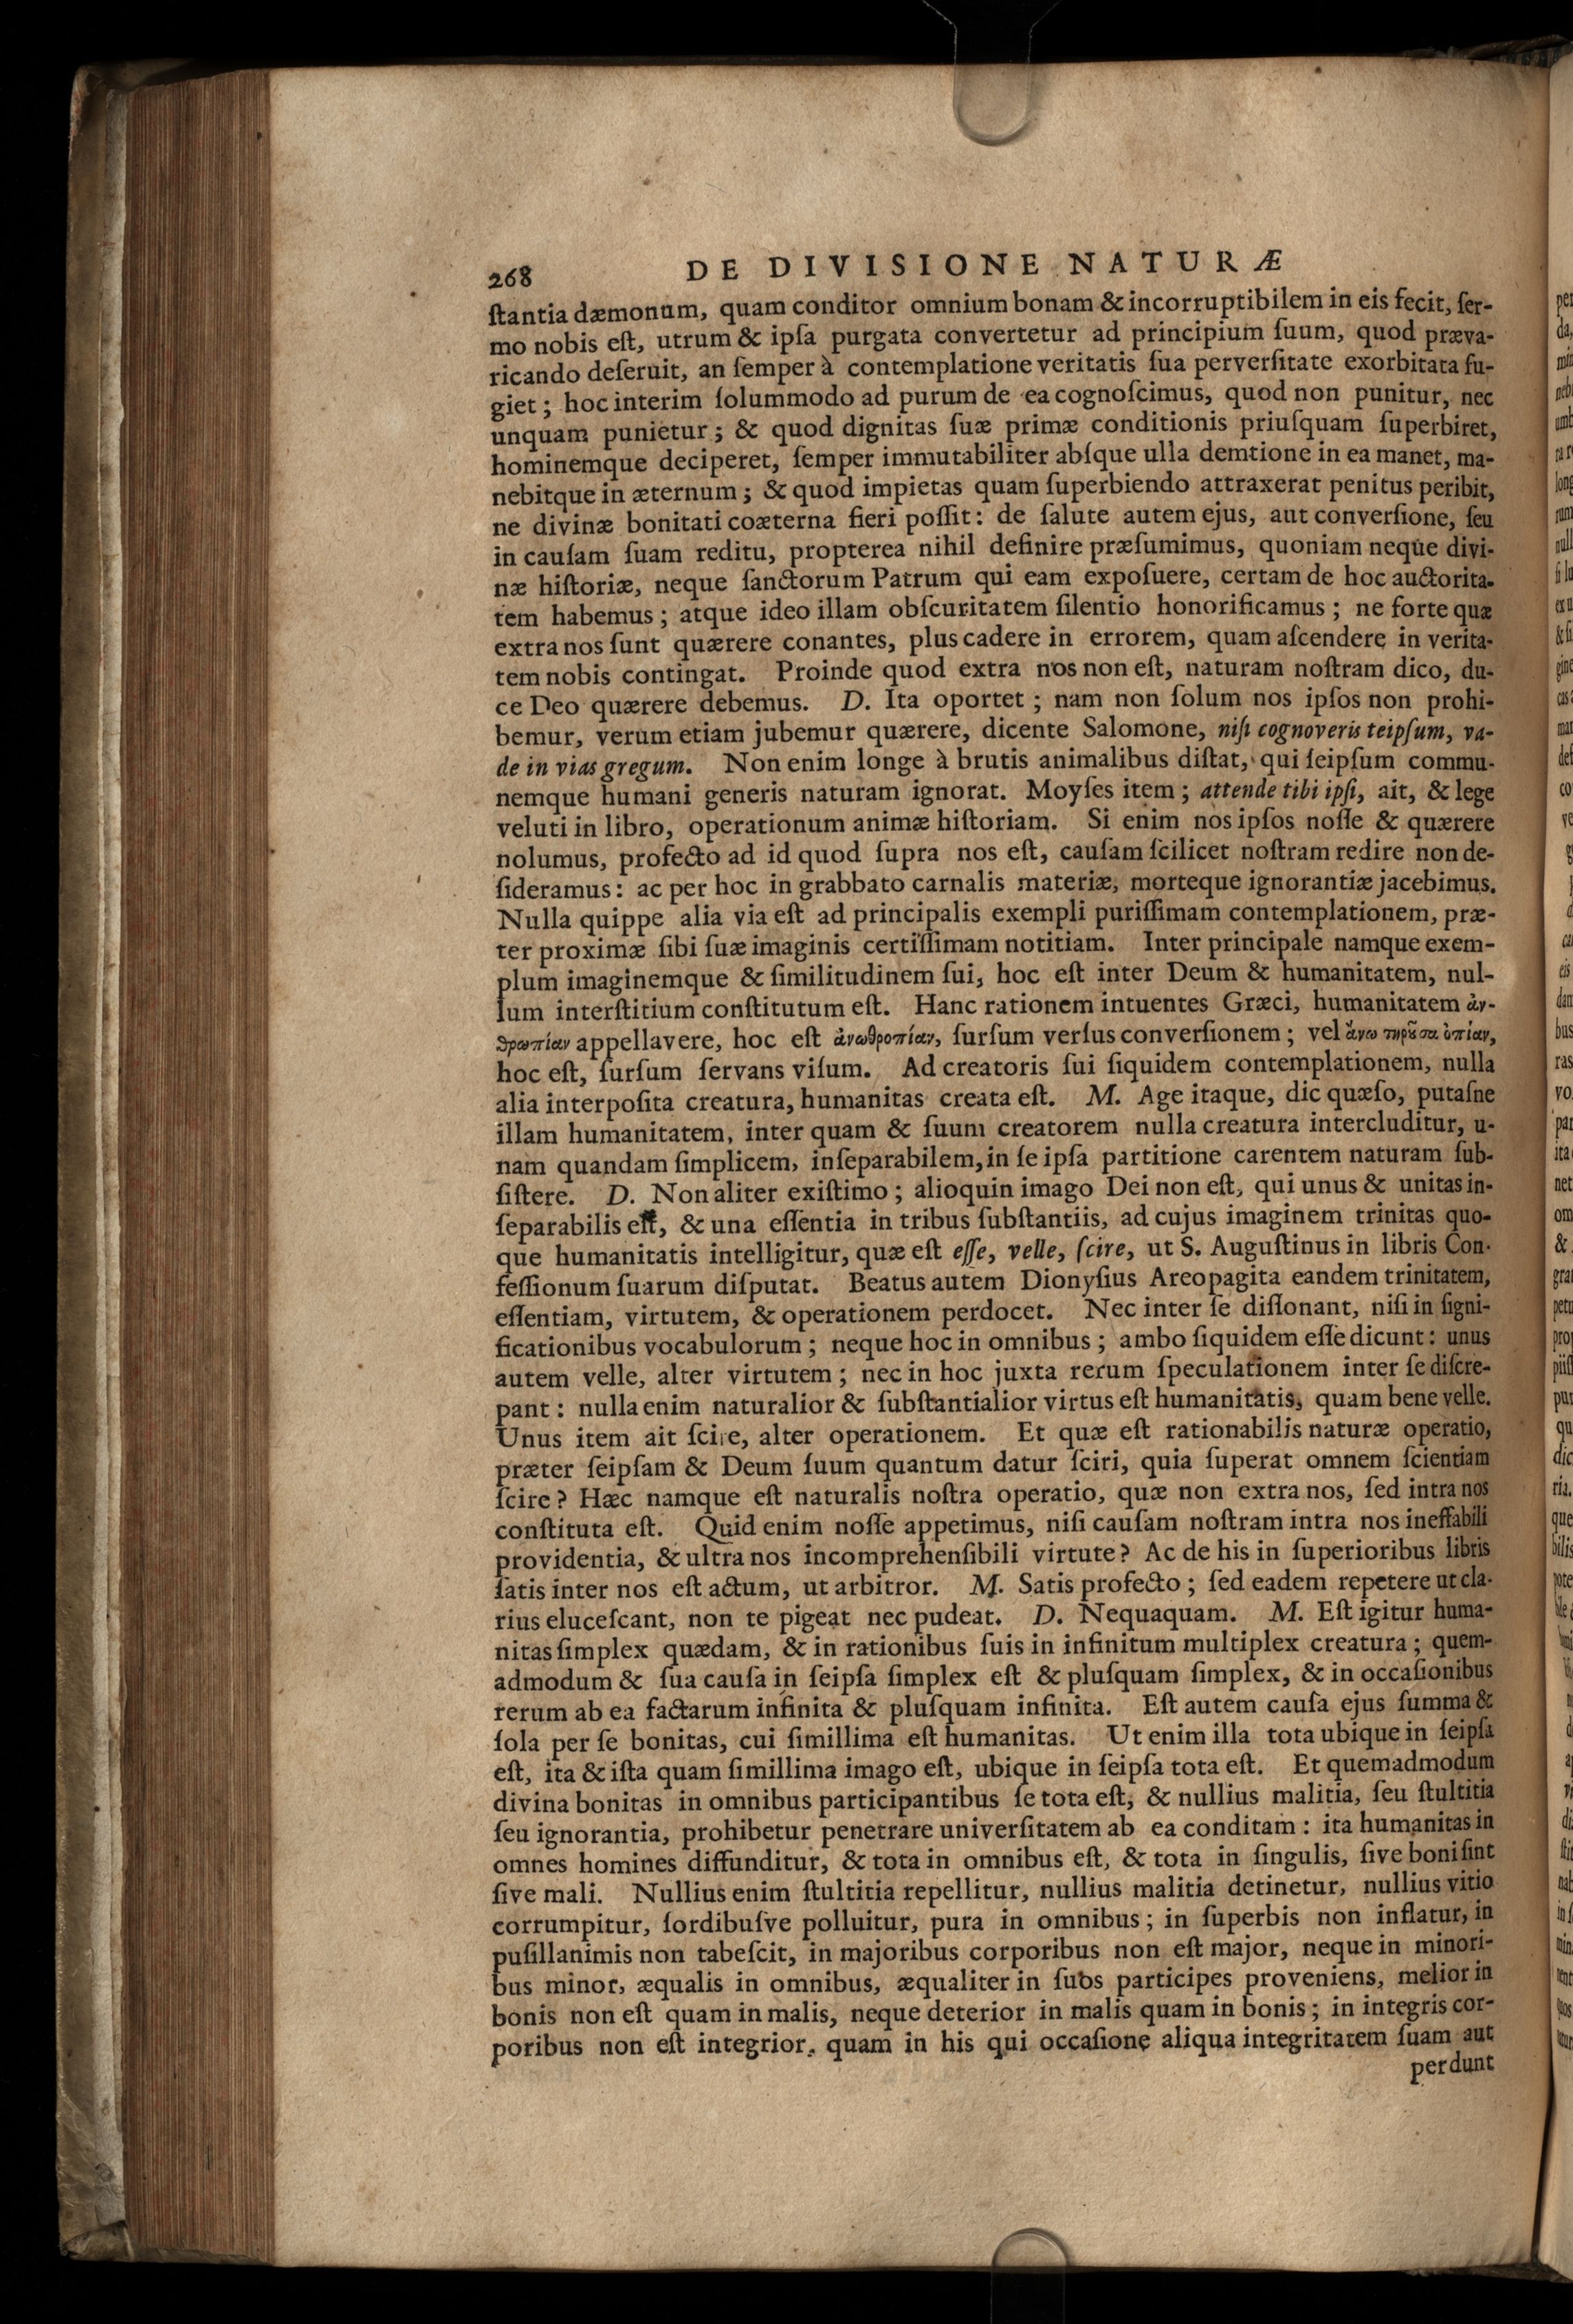 268 DE DIVISIONE NATURÆ
ſtantia dæmonum, quam conditor omnium bonam & incorruptibilem in eis fecit, ſer-
mo nobis eſt, utrum & ipſa purgata convertetur ad principium ſuum, quod præva-
ricando deſeruit, an ſemper à contemplatione veritatis ſua perverſitate exorbitata fu-
giet; hoc interim ſolummodo ad purum de ea cognoſcimus, quod non punitur, nec
unquam punietur; & quod dignitas ſuæ primæ conditionis priuſquam ſuperbiret,
hominemque deciperet, ſemper immutabiliter abſque ulla demtione in ea manet, ma-
nebitque in æternum; & quod impietas quam ſuperbiendo attraxerat penitus peribit,
ne divinæ bonitati coæterna fieri poſſit: de ſalute autem ejus, aut converſione, ſeu
in cauſam ſuam reditu, propterea nihil definire præſumimus, quoniam neque divi-
næ hiſtoriæ, neque ſanctorum Patrum qui eam expoſuere, certam de hoc auctorita-
tem habemus; atque ideo illam obſcuritatem ſilentio honorificamus; ne forte quæ
extra nos ſunt quærere conantes, plus cadere in errorem, quam aſcendere in verita-
tem nobis contingat. Proinde quod extra nos non eſt, naturam noſtram dico, du-
ce Deo quærere debemus. D. Ita oportet; nam non ſolum nos ipſos non prohi-
bemur, verum etiam jubemur quærere, dicente Salomone, niſi cognoveris teipſum, va-
de in vias gregum. Non enim longe à brutis animalibus diſtat, qui ſeipſum commu-
nemque humani generis naturam ignorat. Moyſes item; attende tibi ipſi, ait, & lege
veluti in libro, operationum animæ hiſtoriam. Si enim nos ipſos noſſe & quærere
nolumus, profecto ad id quod ſupra nos eſt, cauſam ſcilicet noſtram redire non de-
ſideramus: ac per hoc in grabbato carnalis materiæ, morteque ignorantiæ jacebimus.
Nulla quippe alia via eſt ad principalis exempli puriſſimam contemplationem, præ-
ter proximæ ſibi ſuæ imaginis certiſſimam notitiam. Inter principale namque exem-
plum imaginemque & ſimilitudinem ſui, hoc eſt inter Deum & humanitatem, nul-
lum interſtitium conſtitutum eſt. Hanc rationem intuentes Græci, humanitatem ἀν-
θρωπίαν appellavere, hoc eſt ἀνωθροπίαν, ſurſum verſus converſionem; vel ἄνω τηροῦσα ὀπίαν,
hoc eſt, ſurſum ſervans viſum. Ad creatoris ſui ſiquidem contemplationem, nulla
alia interpoſita creatura, humanitas creata eſt. M. Age itaque, dic quæſo, putaſne
illam humanitatem, inter quam & ſuum creatorem nulla creatura intercluditur, u-
nam quandam ſimplicem, inſeparabilem, in ſe ipſa partitione carentem naturam ſub-
ſiſtere. D. Non aliter exiſtimo; alioquin imago Dei non eſt, qui unus & unitas in-
ſeparabilis eſt, & una eſſentia in tribus ſubſtantiis, ad cujus imaginem trinitas quo-
que humanitatis intelligitur, quæ eſt eſſe, velle, ſcire, ut S. Auguſtinus in libris Con-
feſſionum ſuarum diſputat. Beatus autem Dionyſius Areopagita eandem trinitatem,
eſſentiam, virtutem, & operationem perdocet. Nec inter ſe diſſonant, niſi in ſigni-
ficationibus vocabulorum; neque hoc in omnibus; ambo ſiquidem eſſe dicunt: unus
autem velle, alter virtutem; nec in hoc juxta rerum ſpeculationem inter ſe diſcre-
pant: nulla enim naturalior & ſubſtantialior virtus eſt humanitatis, quam bene velle.
Unus item ait ſcire, alter operationem. Et quæ eſt rationabilis naturæ operatio,
præter ſeipſam & Deum ſuum quantum datur ſciri, quia ſuperat omnem ſcientiam
ſcire? Hæc namque eſt naturalis noſtra operatio, quæ non extra nos, ſed intra nos
conſtituta eſt. Quid enim noſſe appetimus, niſi cauſam noſtram intra nos ineffabili
providentia, & ultra nos incomprehenſibili virtute? Ac de his in ſuperioribus libris
ſatis inter nos eſt actum, ut arbitror. M. Satis profecto; ſed eadem repetere ut cla-
rius eluceſcant, non te pigeat nec pudeat. D. Nequaquam. M. Eſt igitur huma-
nitas ſimplex quædam, & in rationibus ſuis in infinitum multiplex creatura; quem-
admodum & ſua cauſa in ſeipſa ſimplex eſt & pluſquam ſimplex, & in occaſionibus
rerum ab ea factarum infinita & pluſquam infinita. Eſt autem cauſa ejus ſumma &
ſola per ſe bonitas, cui ſimillima eſt humanitas. Ut enim illa tota ubique in ſeipſa
eſt, ita & iſta quam ſimillima imago eſt, ubique in ſeipſa tota eſt. Et quemadmodum
divina bonitas in omnibus participantibus ſe tota eſt, & nullius malitia, ſeu ſtultitia
ſeu ignorantia, prohibetur penetrare univerſitatem ab ea conditam: ita humanitas in
omnes homines diffunditur, & tota in omnibus eſt, & tota in ſingulis, ſive boni ſint
ſive mali. Nullius enim ſtultitia repellitur, nullius malitia detinetur, nullius vitio
corrumpitur, ſordibuſve polluitur, pura in omnibus; in ſuperbis non inflatur, in
puſillanimis non tabeſcit, in majoribus corporibus non eſt major, neque in minori-
bus minor, æqualis in omnibus, æqualiter in ſuos participes proveniens, melior in
bonis non eſt quam in malis, neque deterior in malis quam in bonis; in integris cor-
poribus non eſt integrior, quam in his qui occaſione aliqua integritatem ſuam aut
perdunt